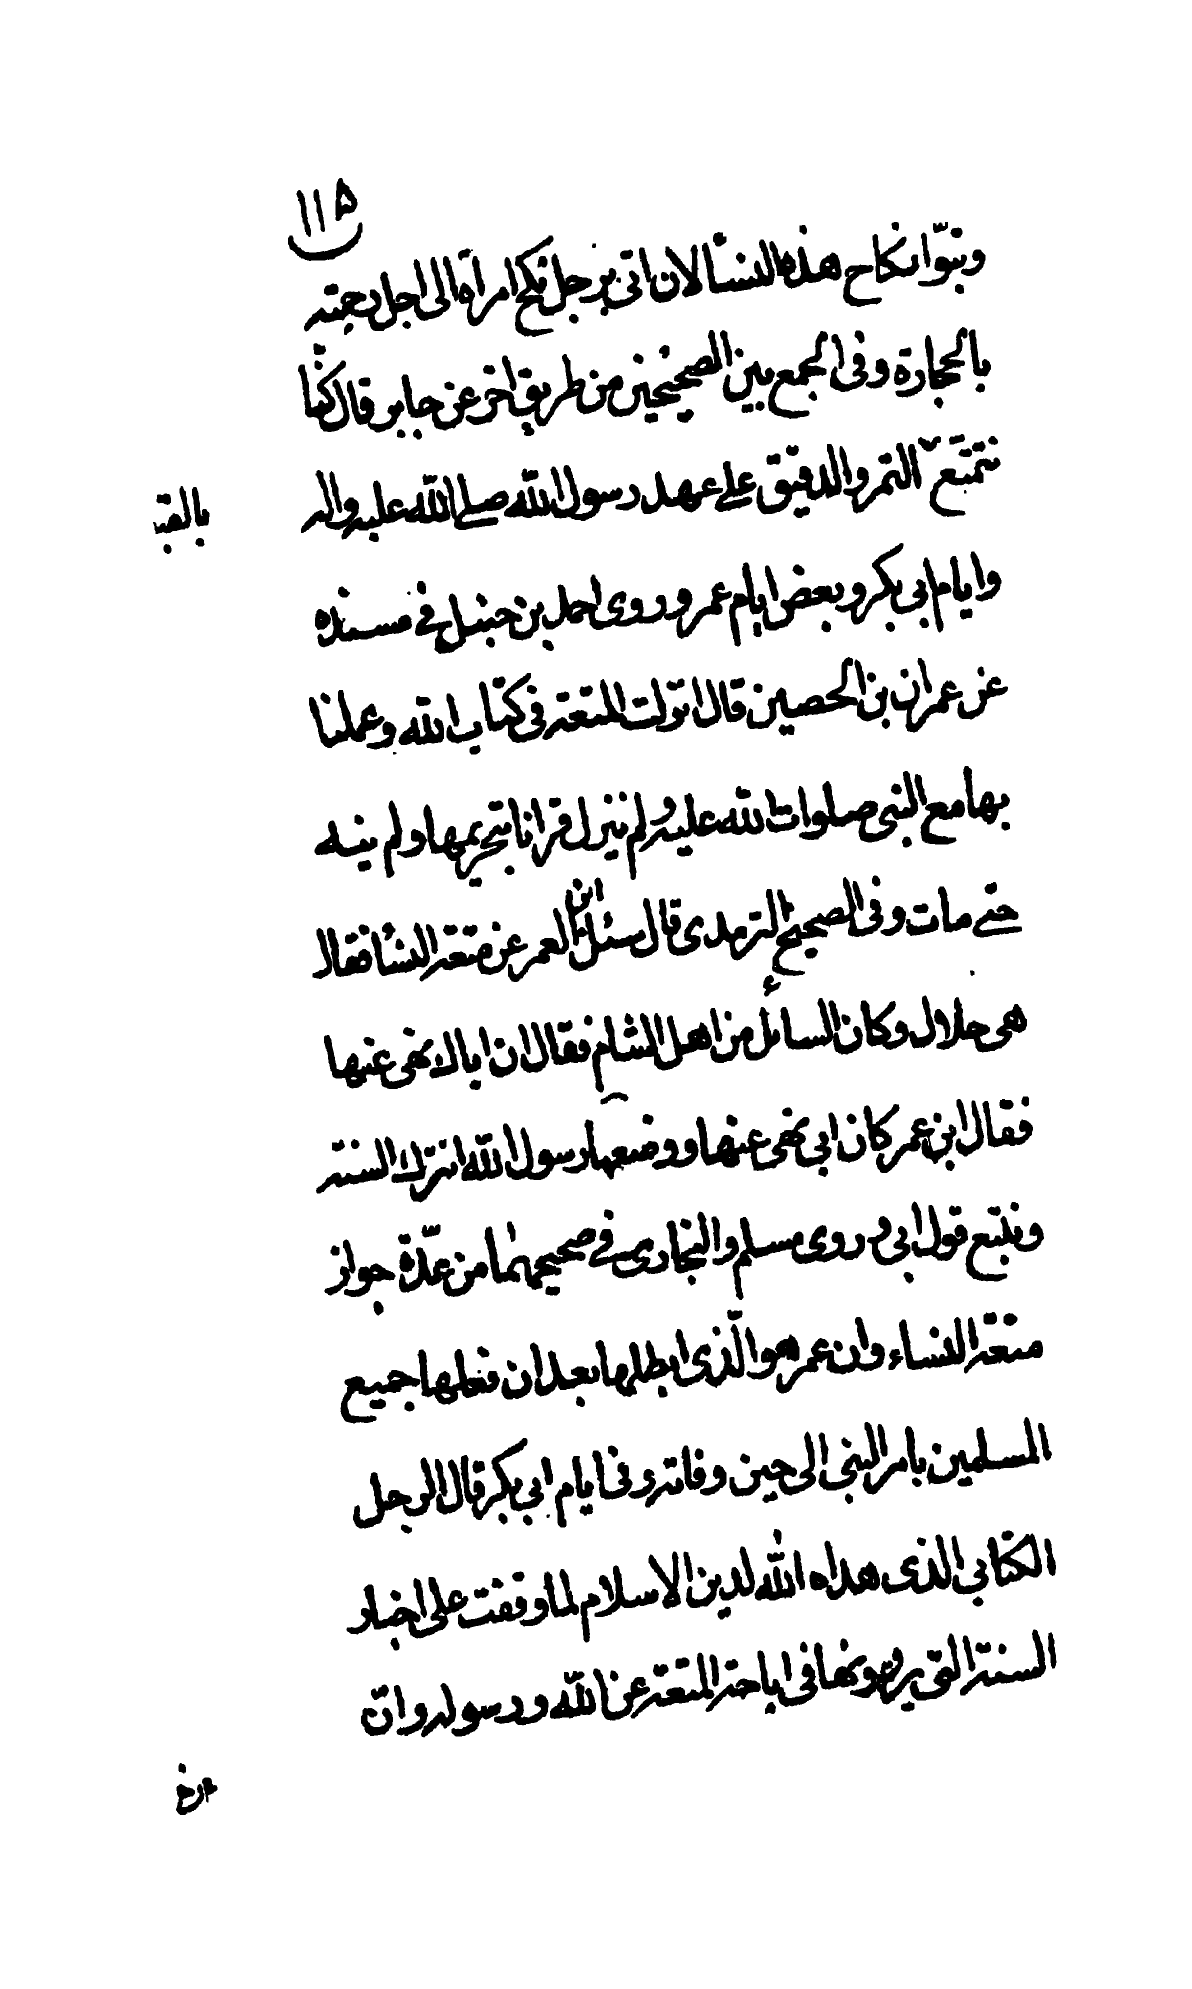 ١١۵
وبتوّا نكاح هذه النسأ لان اتى برجل نكح امرأة الى اجل رجمته
بالحجارة وفى الجمع بين الصحيحين من طريق اخر عن جابر قال كنّا
نتمتّع التمر والدقيق على عهد رسول الله صلى الله عليه واله
بالقبـ
وايام ابى بكر وبعض ايام عمر وروى احمد بن حنبل في مسنده
عن عمران بن الحصين قال انزلت المتعة فى كتاب الله وعملنا
بها مع النبى صلوات الله عليه ولم ينزل قرانا بتحريمها ولم ينه
حتى مات وفى الصحيح الترمدى قال سئل ابن العمر عن متعة النسأ فقال
هى حلال وكان السائل من اهل الشام فقال ان اباك نهى عنها
فقال ابن عمر كان ابى نهى عنها ووضعها رسول الله انترك السنة
ونتبع قول ابى وروى مسلم والبخارى في صحيحهما من عدّة جواز
متعة النساء وان عمر هو الّذى ابطلها بعد ان فعلها جميع
المسلمين بامر النبى الى حين وفاته وفى ايام ابى بكر قال الرجل
الكتابى الذى هداه الله لدين الاسلام لما وقفت على اخبار
السنة التى يروونها فى اباحة المتعة عن الله ورسوله وانّ